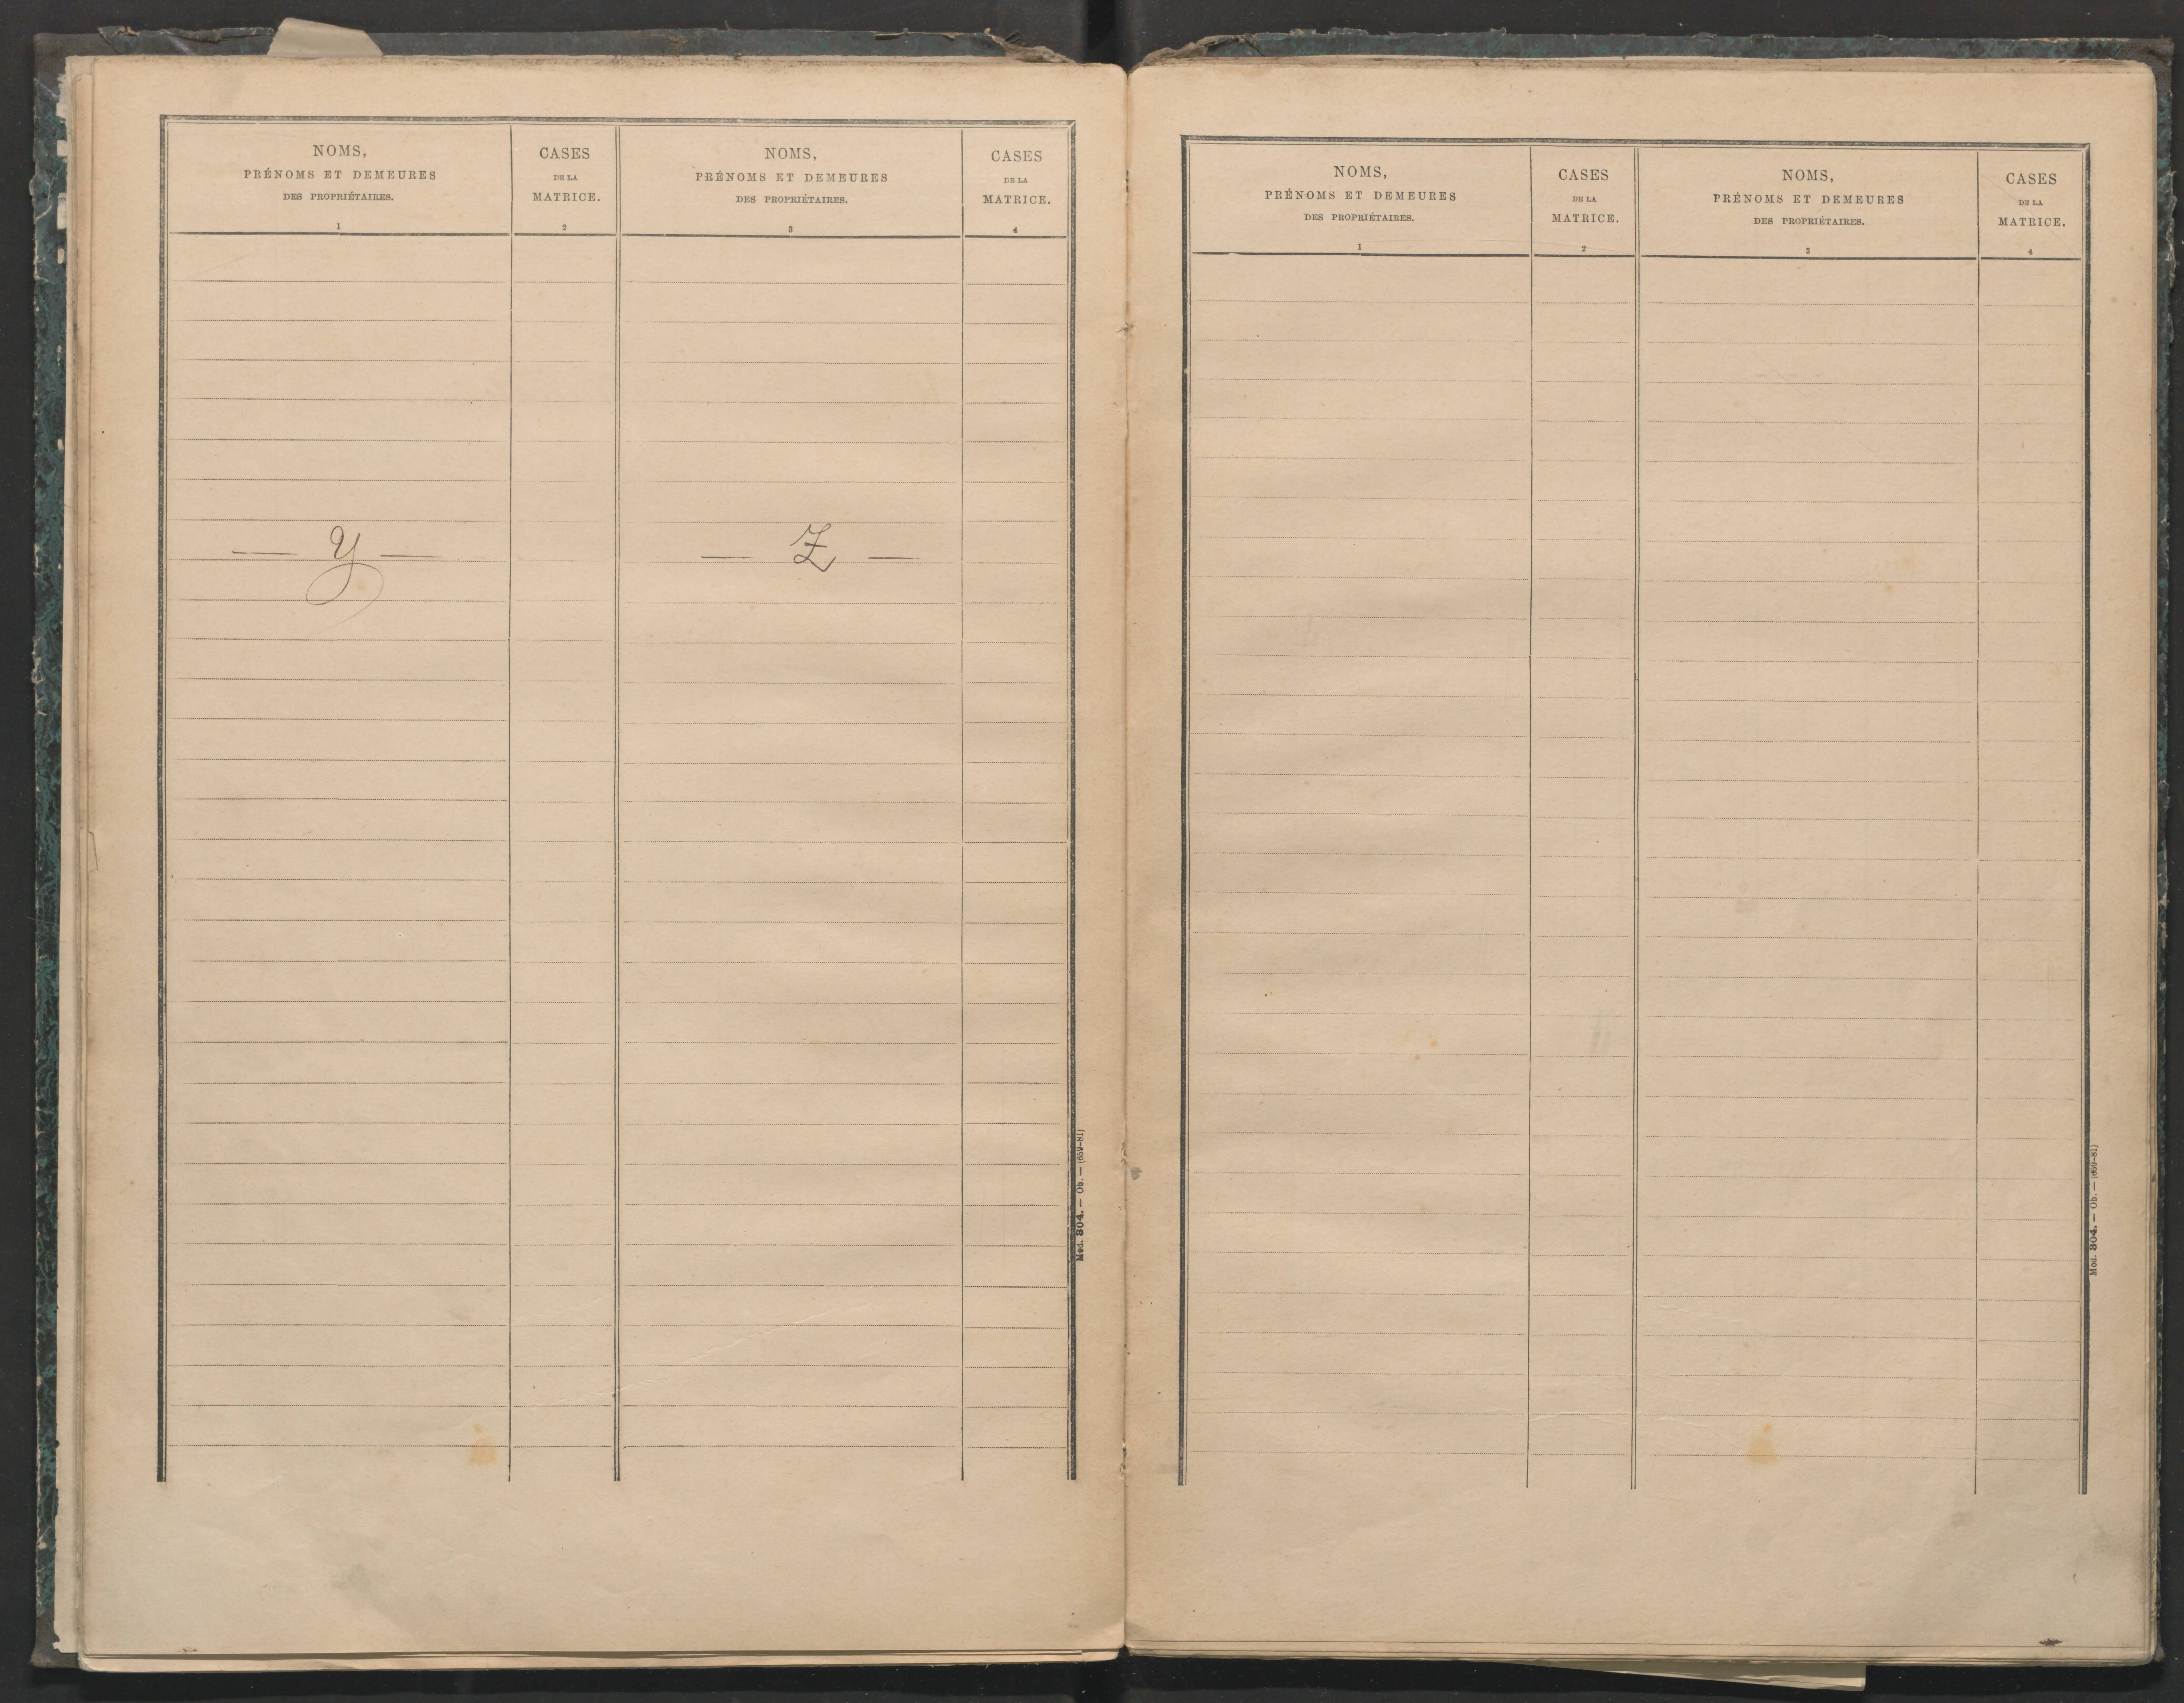 NOMS,
PRÉNOMS ET DEMEURES
DES PROPRIÉTAIRES.
1
CASES
DE LA
MATRICE.
2
NOMS,
PRÉNOMS ET DEMEURES
DES PROPRIÉTAIRES.
3
CASES
DE LA
MATRICE.
4
— Y —
— Z —
Mod. 304. — Ob. — (659-81)
NOMS,
PRÉNOMS ET DEMEURES
DES PROPRIÉTAIRES.
1
CASES
DE LA
MATRICE.
2
NOMS,
PRÉNOMS ET DEMEURES
DES PROPRIÉTAIRES.
3
CASES
DE LA
MATRICE.
4
Mod. 304. — Ob. — (659-81)